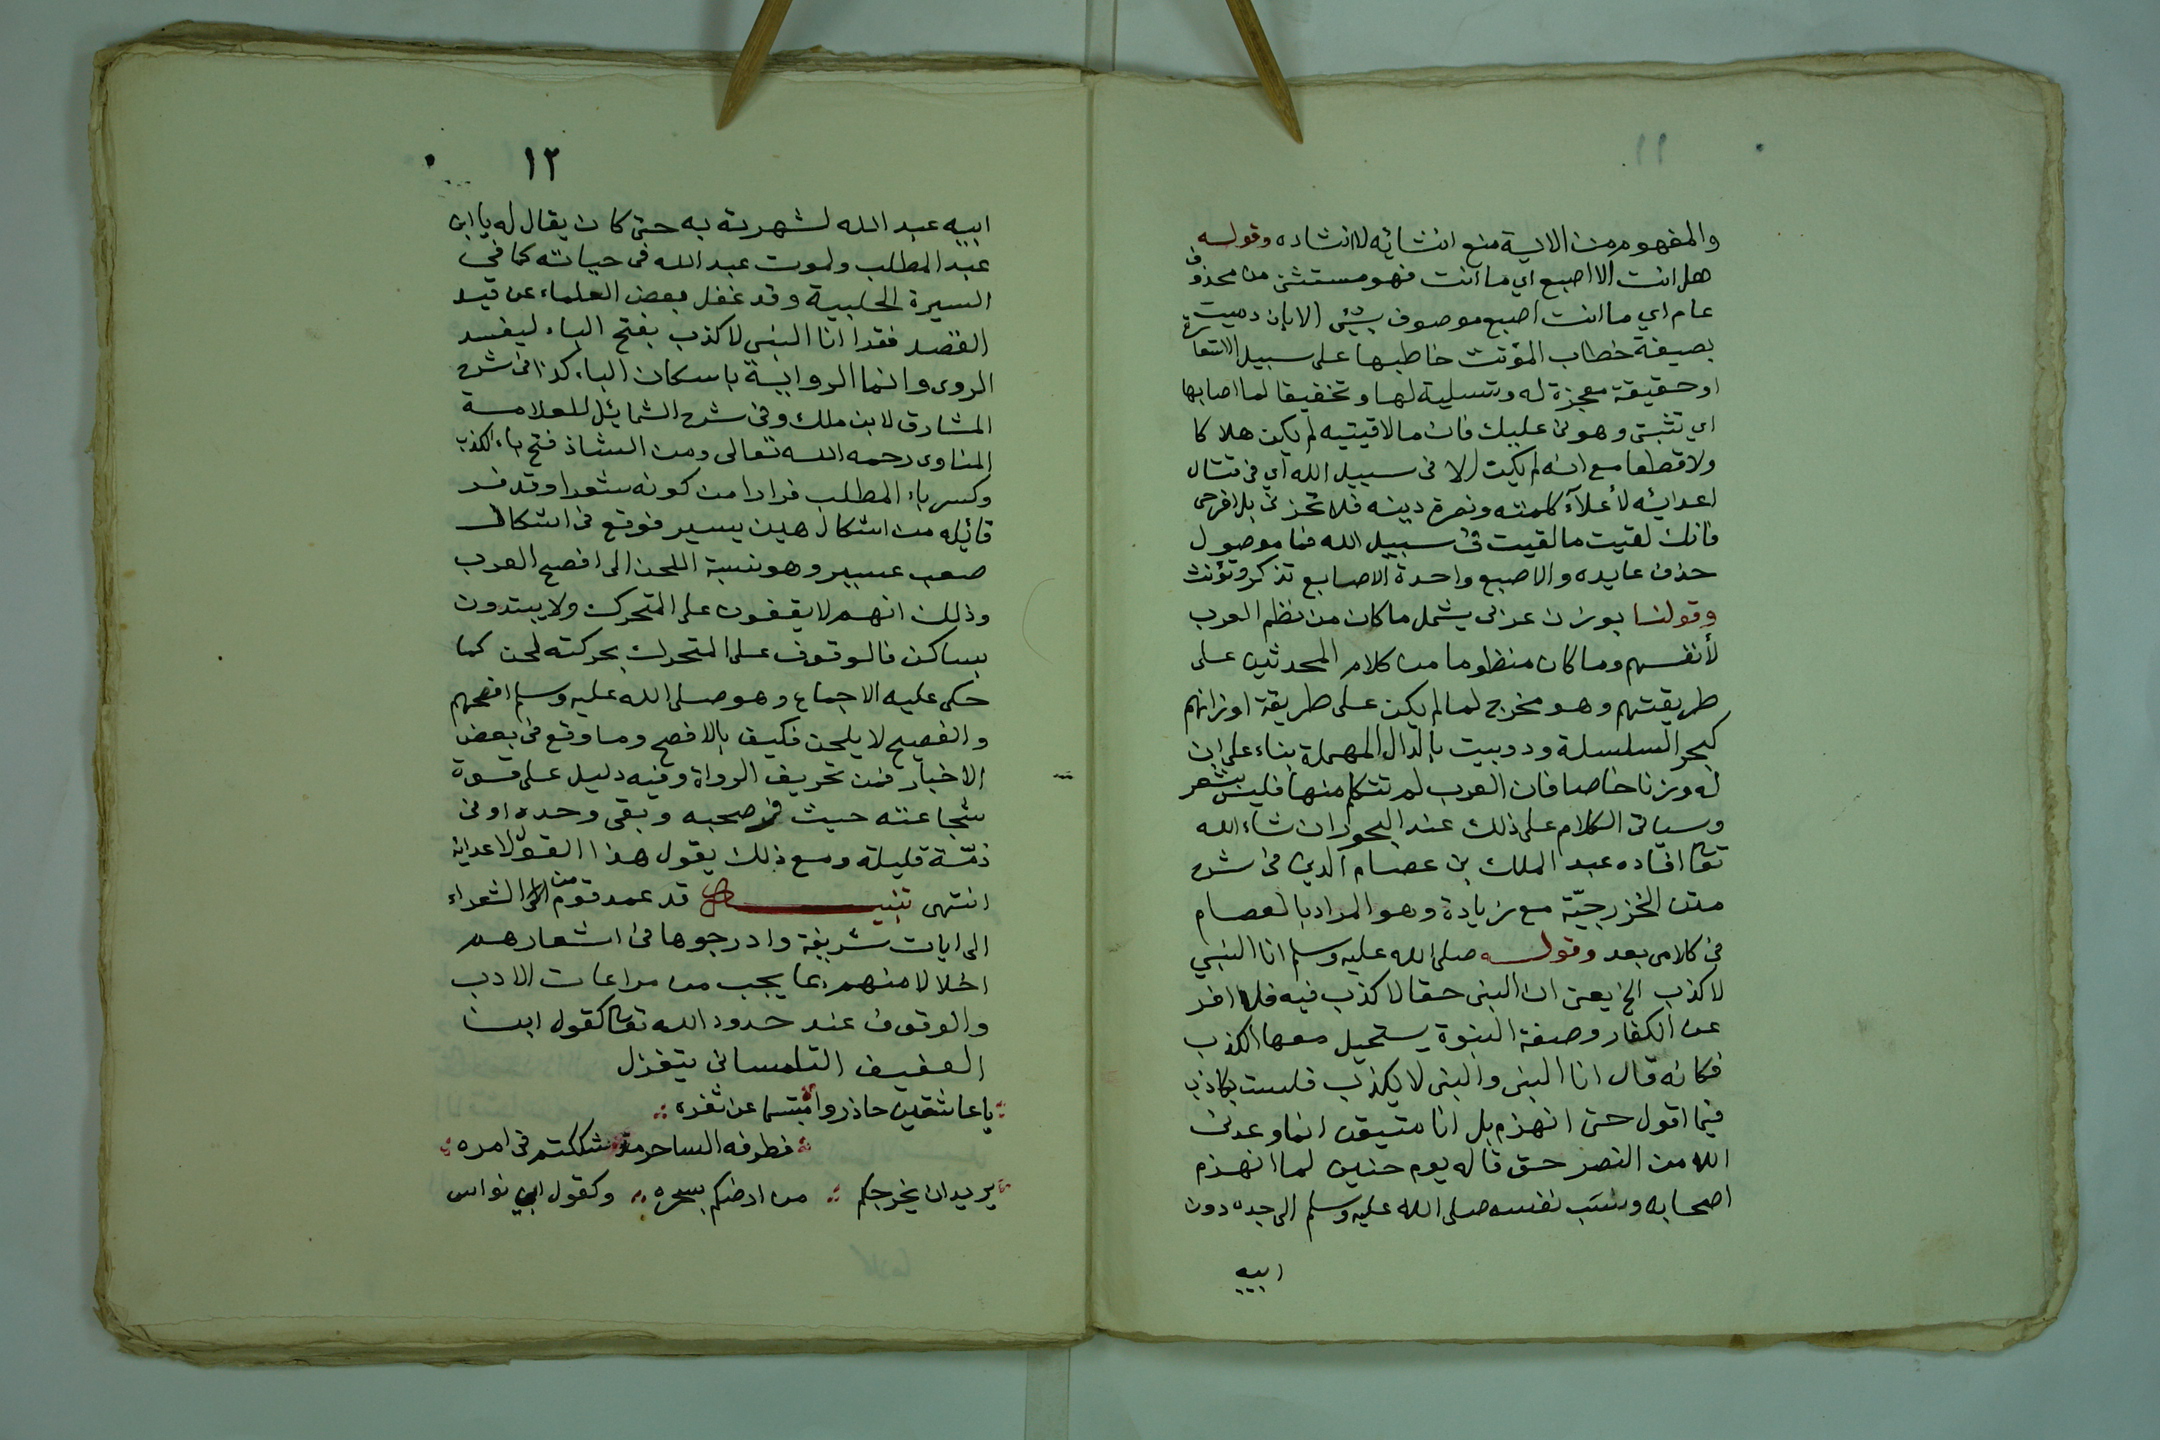 والمفهوم من الاية منع انشائه لا انشاده وقوله
هل انت الا اصبع اي ما انت فهو مستثنى من محذوف
عام اي ما انت اصبع موصوف بشئ الا بان دميت
بصيغة خطاب المؤنث خاطبها على سبيل الاستعارة
او حقيقة معجزة له وتسلية لها وتخفيفا لما اصابها
اي تثبتى وهونى عليك فان ما لاقيتيه لم يكن هلاكا
ولا قطعا مع انه لم يكن الا فى سبيل الله اي فى قتال
اعدائه لأعلآء كلمته ونصرة دينه فلا تحزنى بل افرحى
فانك لقيت ما لقيت فى سبيل الله فما موصول
حذف عايده والاصبع واحدة الاصابع تذكر وتؤنث
وقولنا بوزن عربى يشمل ما كان من نظم العرب
لأنفسهم وما كان منظوما من كلام المحدثين على
طريقتهم وهو مخرج لما لم يكن على طريقة اوزانهم
كبحر السلسلة ودوبيت بالدال المهملة بناء على ان
له وزنا خاصا فان العرب لم تتكلم منها فليس بشعر
وسياتى الكلام على ذلك عند البحور ان شاء الله
تعا افاده عبد الملك بن عصام الدين فى شرح
متن الخزرجيّة مع زيادة وهو المراد بالعصام
فى كلامى بعد وقوله صلى الله عليه وسلم انا النبي
لا كذب الخ يعنى ان النبى حقا لا كذب فيه فلا افر
عن الكفار وصفة النبوة يستحيل معها الكذب
فكانه قال انا النبى والنبى لا يكذب فلست بكاذب
فيما اقول حتى انهزم بل انا متيقن انما وعدنى
الله من النصر حق قاله يوم حنين لما انهزم
اصحابه ونسَب نفسه صلى الله عليه وسلم الى جده دون
ابيه
١٢
ابيه عبد الله لشهرته به حتى كان يقال له يا ابن
عبد المطلب ولموت عبد الله فى حياته كما فى
السيرة الحلبية وقد غفل بعض العلماء عن قيد
القصد فقرا انا النبى لا كذب بفتح الباء ليفسد
الروى وانما الرواية باسكان الباء كذا فى شرح
المشارق لابن ملك وفى شرح الشمائل للعلامة
المناوى رحمه الله تعالى ومن الشاذ فتح باء الكذب
وكسر باء المطلب فرارا من كونه شعرا وقد فر
قائله من اشكال هين يسير فوقع فى اشكال
صعب عسير وهو نسبة اللحن الى افصح العرب
وذلك انهم لا يقفون على المتحرك ولا يبتدون
بساكن فالوقوف على المتحرك بحركته لحن كما
حكى عليه الاجماع وهو صلى الله عليه وسلم افصحهم
والفصيح لا يلحن فكيف بالافصح وما وقع فى بعض
الاخبار فمن تحريف الرواة وفيه دليل على قوة
شجاعته حيث فر صحبه وبقى وحده او فى
ذمّة قليلة ومع ذلك يقول هذا القول لاعدائه
انتهى تنبيه قد عمد قوم من الشعراء
الى ايات شريفة وادرجوها فى اشعارهم
اخلالا منهم بما يجب من مراعات الادب
والوقوف عند حدود الله تعا كقول ابن
العفيف التلمسانى يتغزل
يا عاشقين حاذروا مبتسما عن ثغره
فطرفه الساحر مذ شككتم فى امره
يريد ان يخرجكم من ارضكم بسحره وكقول ابي نواس